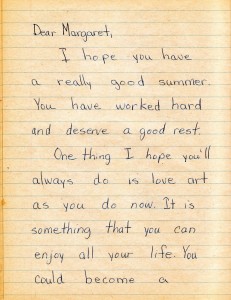 Dear Margaret,
I hope you have
a really good summer.
You have worked hard
and deserve a good rest.
One thing I hope you'll
always do is love art
as you do now. It is
something that you can
enjoy all your life. You
could become a